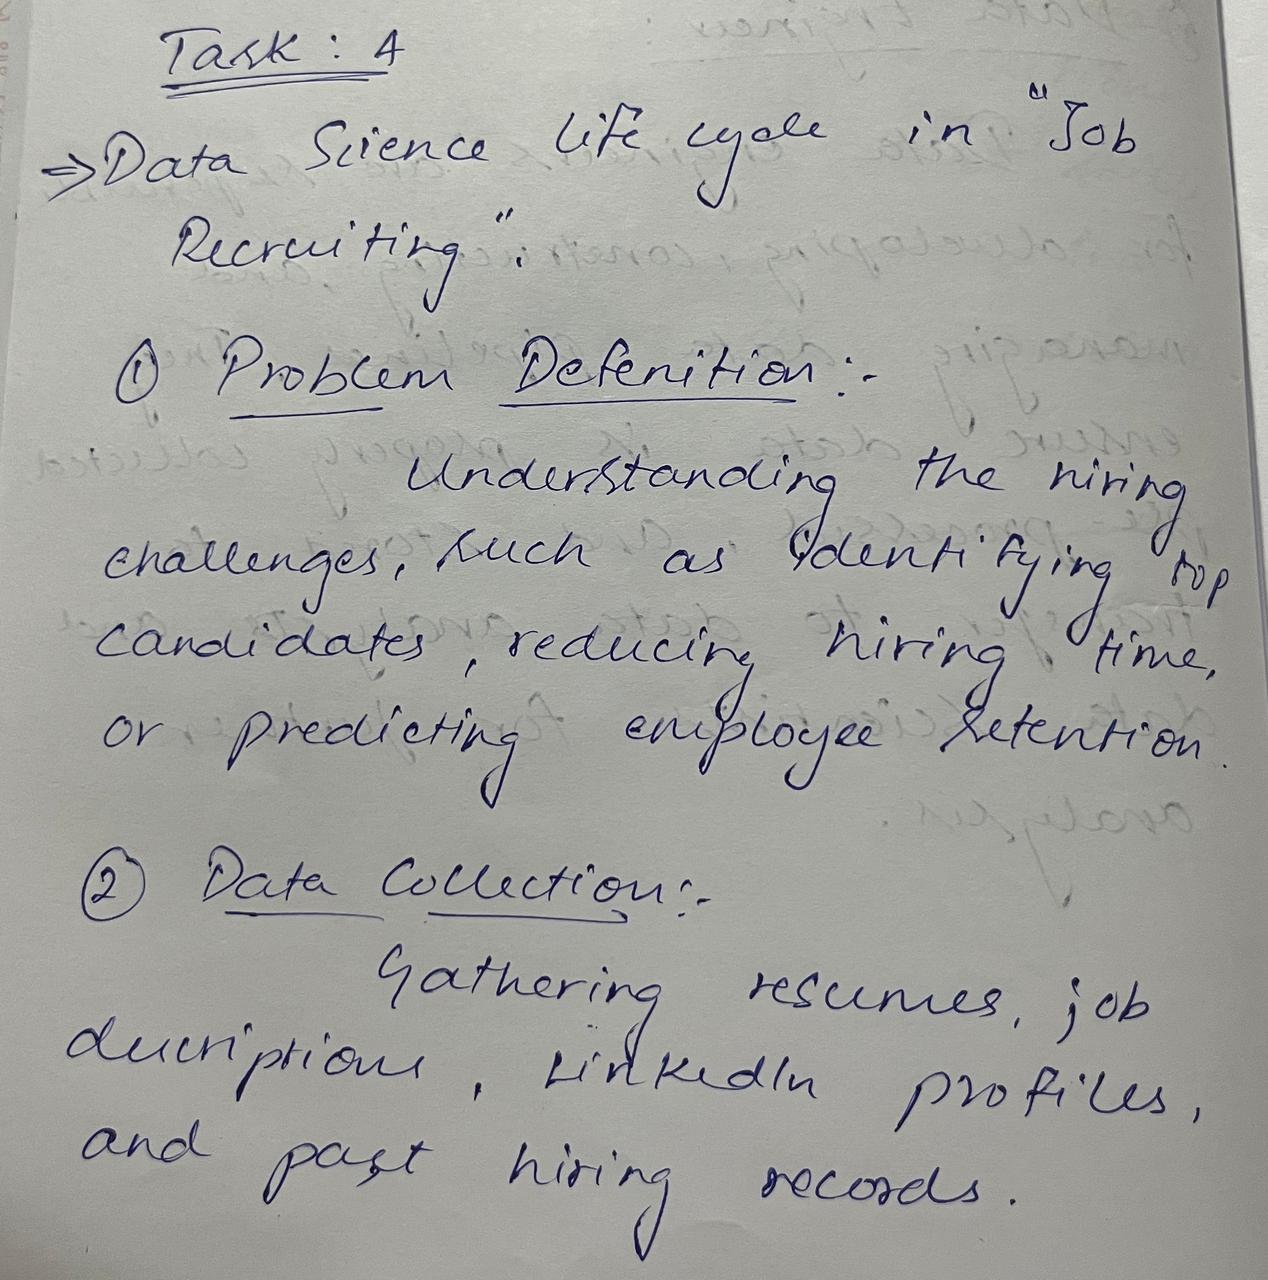 Task : 4
⇒ Data Science life cycle in "Job
Recruiting".
① Problem Defenition :-
Understanding the hiring
challenges, such as identifying top
candidates, reducing hiring time,
or predicting employee retention.
② Data Collection :-
Gathering resumes, job
descriptions, LinkedIn profiles,
and past hiring records.